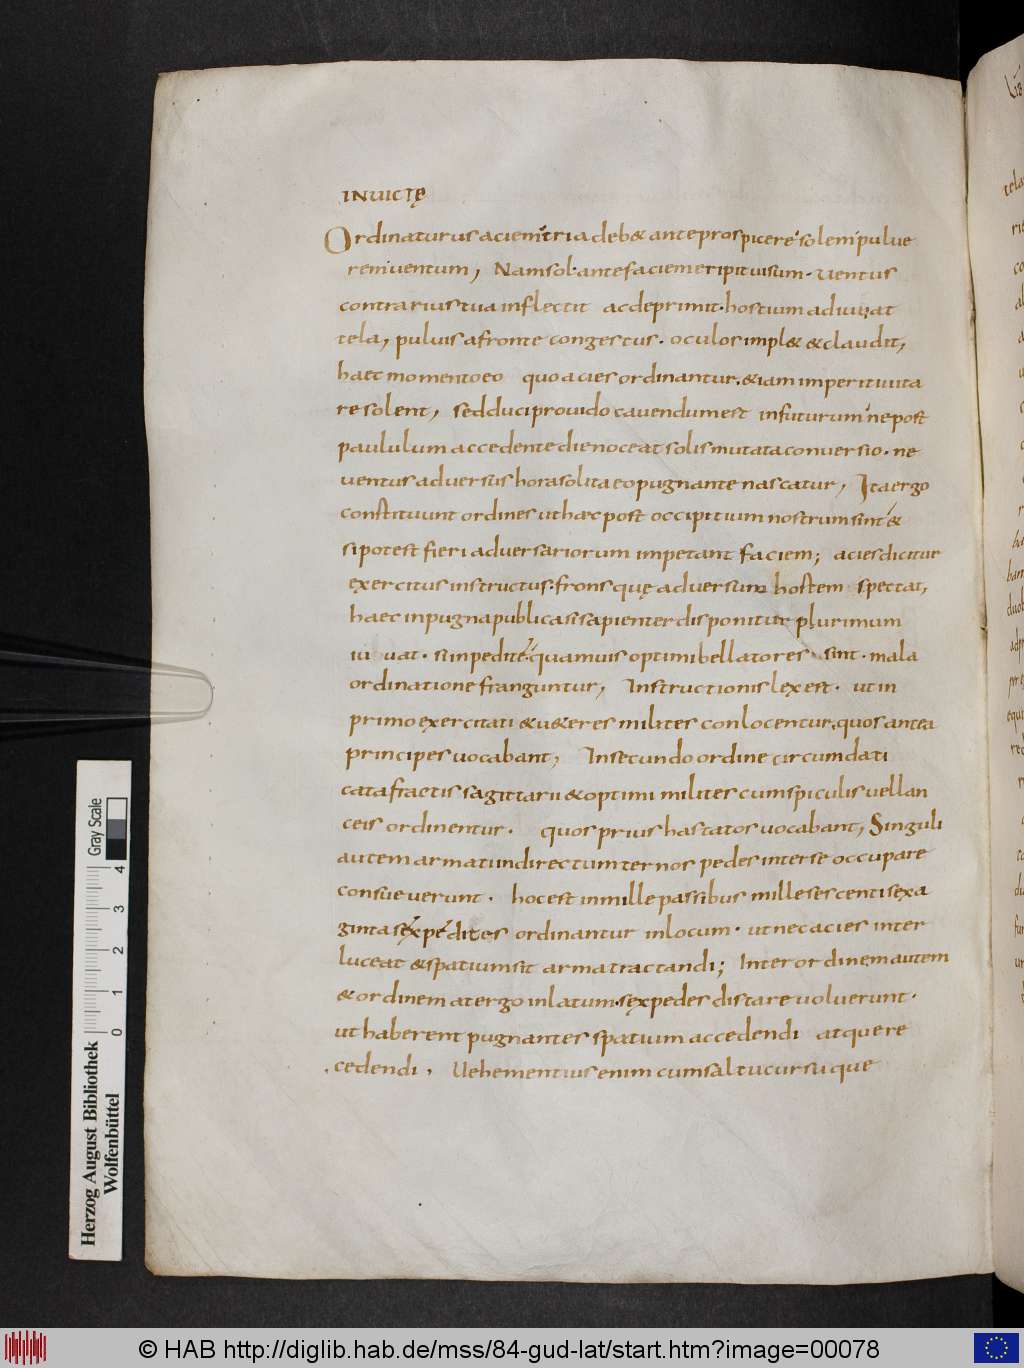 INVICTĘ
Ordinaturus aciem tria deb& ante prospicere solem pulue
rem uentum, Nam sol ante faciem eripit uisum. uentus
contrarius tua inflectit ac deprimit. hostium adiuuat
tela, puluis a fronte congestus. oculos impl& & claudit,
haec momento eo quo acies ordinantur. &iam imperiti uita
re solent, sed duci prouido cauendum est in futurum ne post
paululum accedente die noceat solis mutata conuersio. ne
uentus aduersus hora solita eo pugnante nascatur, Ita ergo
constituunt ordines ut haec post occipitium nostrum sint &
si potest fieri aduersariorum impetant faciem; acies dicitur
exercitus instructus. frons quę aduersum hostem spectat,
haec in pugna publica si sapienter disponitur plurimum
iuuat. sin pedite quamuis optimi bellatores sint. mala
ordinatione franguntur, Instructionis lex est. ut in
primo exercitati & u&eres milites conlocentur. quos antea
principes uocabant, In secundo ordine circumdati
catafractis sagittarii & optimi milites cum spiculis uel lan
ceis ordinentur. quos prius hastatos uocabant, Singuli
autem armati in directum ternos pedes inter se occupare
consueuerunt. hoc est in mille passibus mille sescenti sexa
ginta sex pedites ordinantur in locum. ut nec acies inter
luceat & spatium sit arma tractandi; Inter ordinem autem
& ordinem a tergo in latum. sex pedes distare uoluerunt.
ut haberent pugnantes spatium accedendi atque re
. cedendi. Uehementius enim cum saltu cursuque
Herzog August Bibliothek
Wolfenbüttel
0 1 2 3 4
Gray Scale
© HAB http://diglib.hab.de/mss/84-gud-lat/start.htm?image=00078